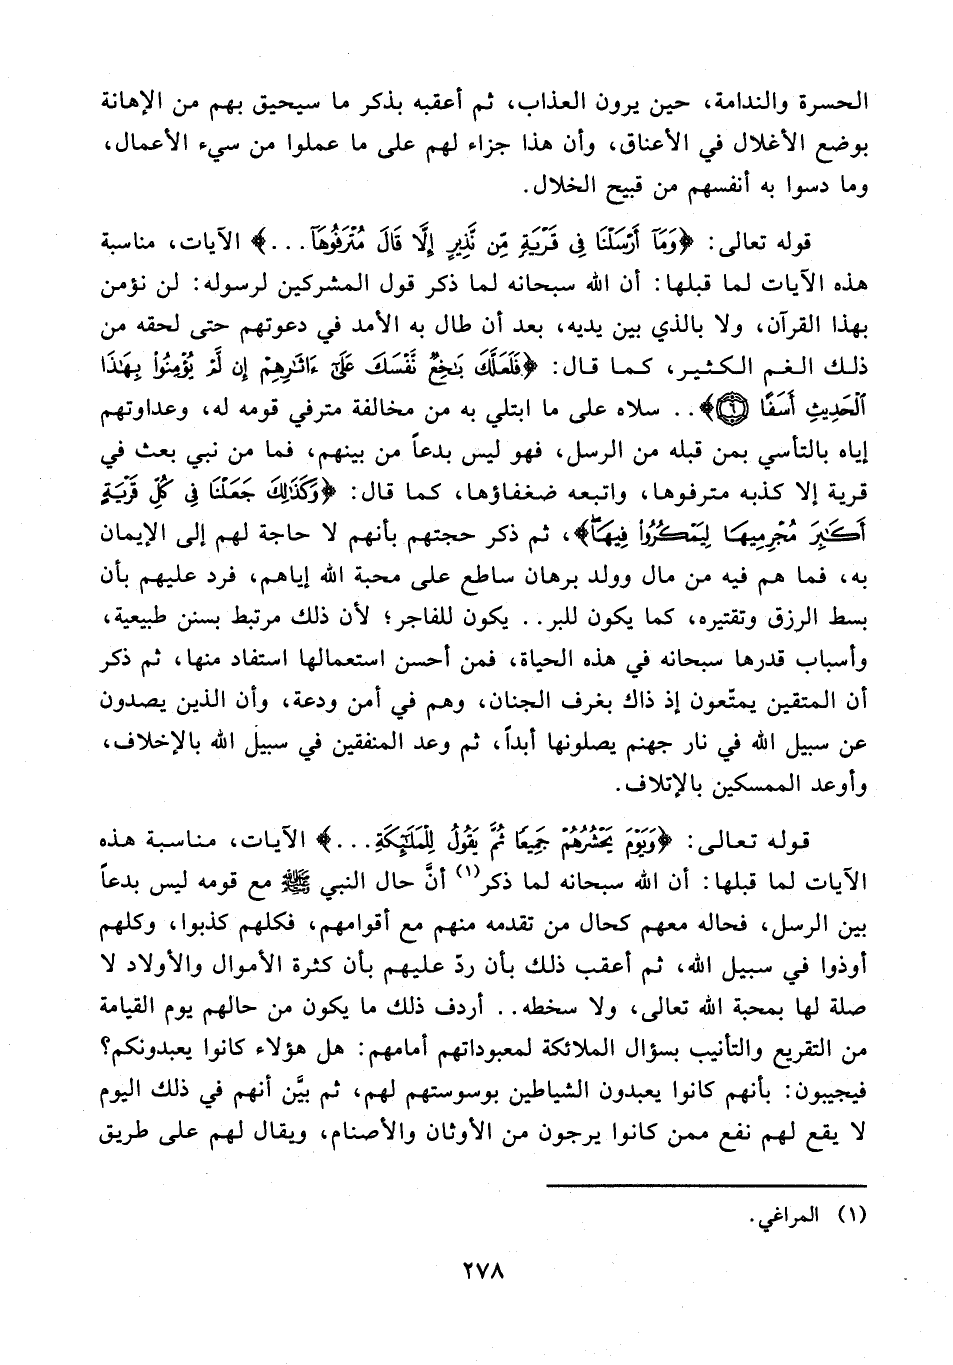 الحسرة والندامة، حين يرون العذاب، ثم أعقبه بذكر ما سيحيق بهم من الإهانة
بوضع الأغلال في الأعناق، وأن هذا جزاء لهم على ما عملوا من سيء الأعمال،
وما دسوا به أنفسهم من قبيح الخلال.
قوله تعالى: ﴿وَمَآ أَرْسَلْنَا فِى قَرْيَةٍ مِّن نَّذِيرٍ إِلَّا قَالَ مُتْرَفُوهَآ...﴾ الآيات، مناسبة
هذه الآيات لما قبلها: أن الله سبحانه لما ذكر قول المشركين لرسوله: لن نؤمن
بهذا القرآن، ولا بالذي بين يديه، بعد أن طال به الأمد في دعوتهم حتى لحقه من
ذلك الغم الكثير، كما قال: ﴿فَلَعَلَّكَ بَٰخِعٌ نَّفْسَكَ عَلَىٰٓ ءَاثَٰرِهِمْ إِن لَّمْ يُؤْمِنُوا۟ بِهَٰذَا
ٱلْحَدِيثِ أَسَفًا ٦﴾.. سلاه على ما ابتلي به من مخالفة مترفي قومه له، وعداوتهم
إياه بالتأسي بمن قبله من الرسل، فهو ليس بدعاً من بينهم، فما من نبي بعث في
قرية إلا كذبه مترفوها، واتبعه ضعفاؤها، كما قال: ﴿وَكَذَٰلِكَ جَعَلْنَا فِى كُلِّ قَرْيَةٍ
أَكَٰبِرَ مُجْرِمِيهَا لِيَمْكُرُوا۟ فِيهَاۖ﴾، ثم ذكر حجتهم بأنهم لا حاجة لهم إلى الإيمان
به، فما هم فيه من مال وولد برهان ساطع على محبة الله إياهم، فرد عليهم بأن
بسط الرزق وتقتيره، كما يكون للبر.. يكون للفاجر؛ لأن ذلك مرتبط بسنن طبيعية،
وأسباب قدرها سبحانه في هذه الحياة، فمن أحسن استعمالها استفاد منها، ثم ذكر
أن المتقين يمتّعون إذ ذاك بغرف الجنان، وهم في أمن ودعة، وأن الذين يصدون
عن سبيل الله في نار جهنم يصلونها أبداً، ثم وعد المنفقين في سبيل الله بالإخلاف،
وأوعد الممسكين بالإتلاف.
قوله تعالى: ﴿وَيَوْمَ يَحْشُرُهُمْ جَمِيعًا ثُمَّ يَقُولُ لِلْمَلَٰٓئِكَةِ...﴾ الآيات، مناسبة هذه
الآيات لما قبلها: أن الله سبحانه لما ذكر(١) أنَّ حال النبي ﷺ مع قومه ليس بدعاً
بين الرسل، فحاله معهم كحال من تقدمه منهم مع أقوامهم، فكلهم كذبوا، وكلهم
أوذوا في سبيل الله، ثم أعقب ذلك بأن ردّ عليهم بأن كثرة الأموال والأولاد لا
صلة لها بمحبة الله تعالى، ولا سخطه.. أردف ذلك ما يكون من حالهم يوم القيامة
من التقريع والتأنيب بسؤال الملائكة لمعبوداتهم أمامهم: هل هؤلاء كانوا يعبدونكم؟
فيجيبون: بأنهم كانوا يعبدون الشياطين بوسوستهم لهم، ثم بيَّن أنهم في ذلك اليوم
لا يقع لهم نفع ممن كانوا يرجون من الأوثان والأصنام، ويقال لهم على طريق
(١) المراغي.
٢٧٨